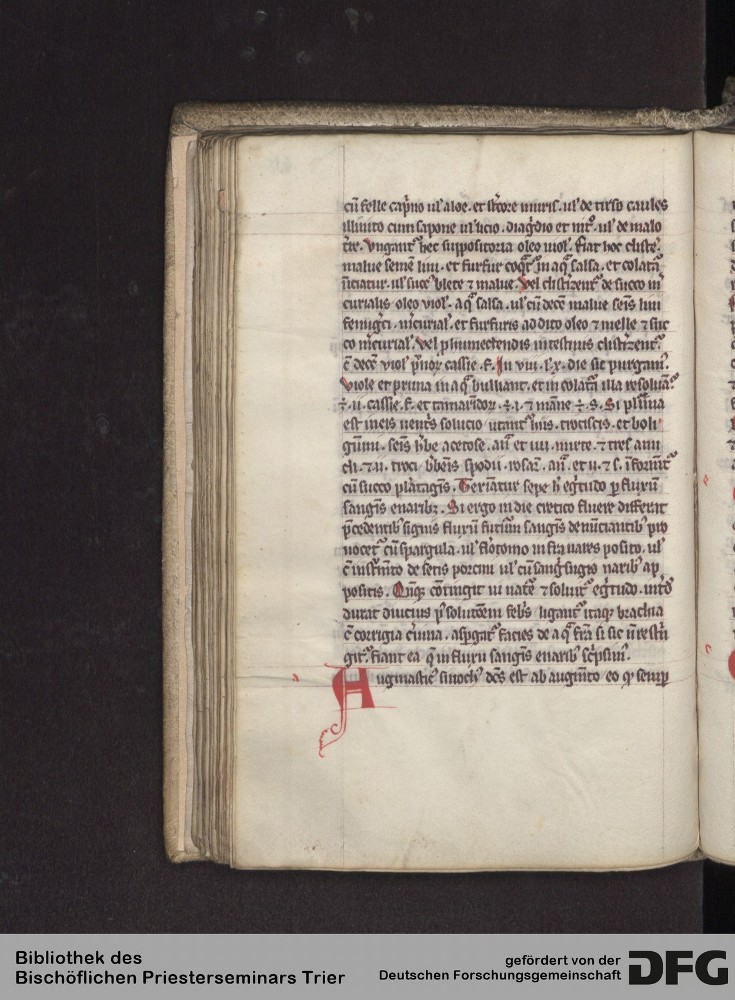 cū felle cap̄no ul' aloe. et st̄coze muris. ul' de tirso caules
illinito cum sapone ul' ticio. diag̓dio et nit̓. ul' de malo
t̄re. Vngant᷑ hec suppositoria oleo uiol'. fiat hoc cliste᷑.
malue semen̄ lini. et furfur coq̄t᷑ in aq̄ salsa. et colat̄a
iniciatur. ul' succ᷑ blete ⁊ malue. Vel clist̓izent᷑ de succo m̓
curialis oleo viol'. aq̄ salsa. ul' cū decc̄e malue sem̄is lini
fenug̓ci. m̓curial'. et furfuris addito oleo ⁊ melle ⁊ suc
co m̓curial'. Vel p̓ humectendis intestinis clist̓izent᷑.
c̄ decc̄e viol' p̓nor̄ cassie. f. In viii. ul' x. die sic purgant᷑.
Viole et pruna in aq̄ bulliant. et in colat̄a illa resoluāt᷑
℥. ii. cassie. f. et tamarīdor̄. ℥. i. ⁊ mane ℥. s. Si pl̓ima
est in eis uent̓s solucio utant᷑ his. trociscis. et boli
gūmi. sem̄is h̓be acetose. an̄ et iiii. mirte. ⁊ tres ami
dli. ⁊ ii. troci b̓beris spodii. rosar̄. an̄. et ii. ⁊ s. īformēt᷑
cū succo plātaginis. Terīatur sepe h̓ eg̓tudo p̲ fluxū
sanḡis enarib᷒. Si ergo in die cretico fluere differat
p̄cedentib᷒ signis fluxū futurum sanḡis denūciantib᷒ pro
uocet᷑ cū spargula. ul' flōtomo in fri nares posito. ul'
c̄ inst̓mto de setis porcini ul' cū sanḡsugis narib᷒ ap
positis. Qn̄q̲ cōtingit in nate ⁊ soluit᷑ eg̓tudo. int̓d᷒
durat diucius p᷒ solutoēm feb̓is ligant᷑ itaq̲ brachia
c̄ corrigia c̓uina. asp̓gat᷑ facies de aq̄ frā si sic n̄ rest̓i
git᷑. fiant ea q̄ in fluxu sanḡis enarib᷒ sc̓psim᷒.
Augmastic᷒ sinoch᷒ dc̄s est ab augm̄to eo q̲ semp̲
Bibliothek des
Bischöflichen Priesterseminars Trier
gefördert von der
Deutschen Forschungsgemeinschaft
DFG